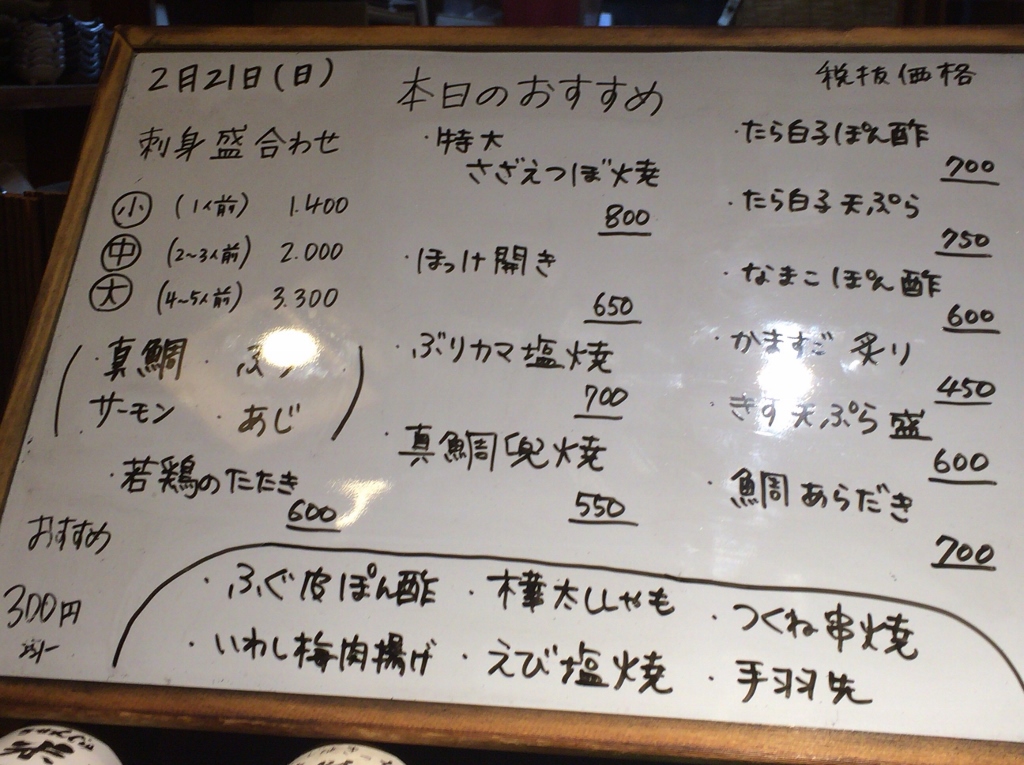 2月21日(日)
本日のおすすめ
税抜価格
刺身盛合わせ
小 (1人前) 1.400
中 (2〜3人前) 2.000
大 (4〜5人前) 3.300
・真鯛 ・ぶり
サーモン ・あじ
・若鶏のたたき
600
・特大
さざえつぼ焼
800
・ほっけ開き
650
・ぶりカマ塩焼
700
・真鯛兜焼
550
・たら白子ぽん酢
700
・たら白子天ぷら
750
・なまこぽん酢
600
・かますご炙り
450
・きす天ぷら盛
600
・鯛あらだき
700
おすすめ
300円
・ふぐ皮ぽん酢 ・樺太ししゃも ・つくね串焼
・いわし梅肉揚げ ・えび塩焼 ・手羽先